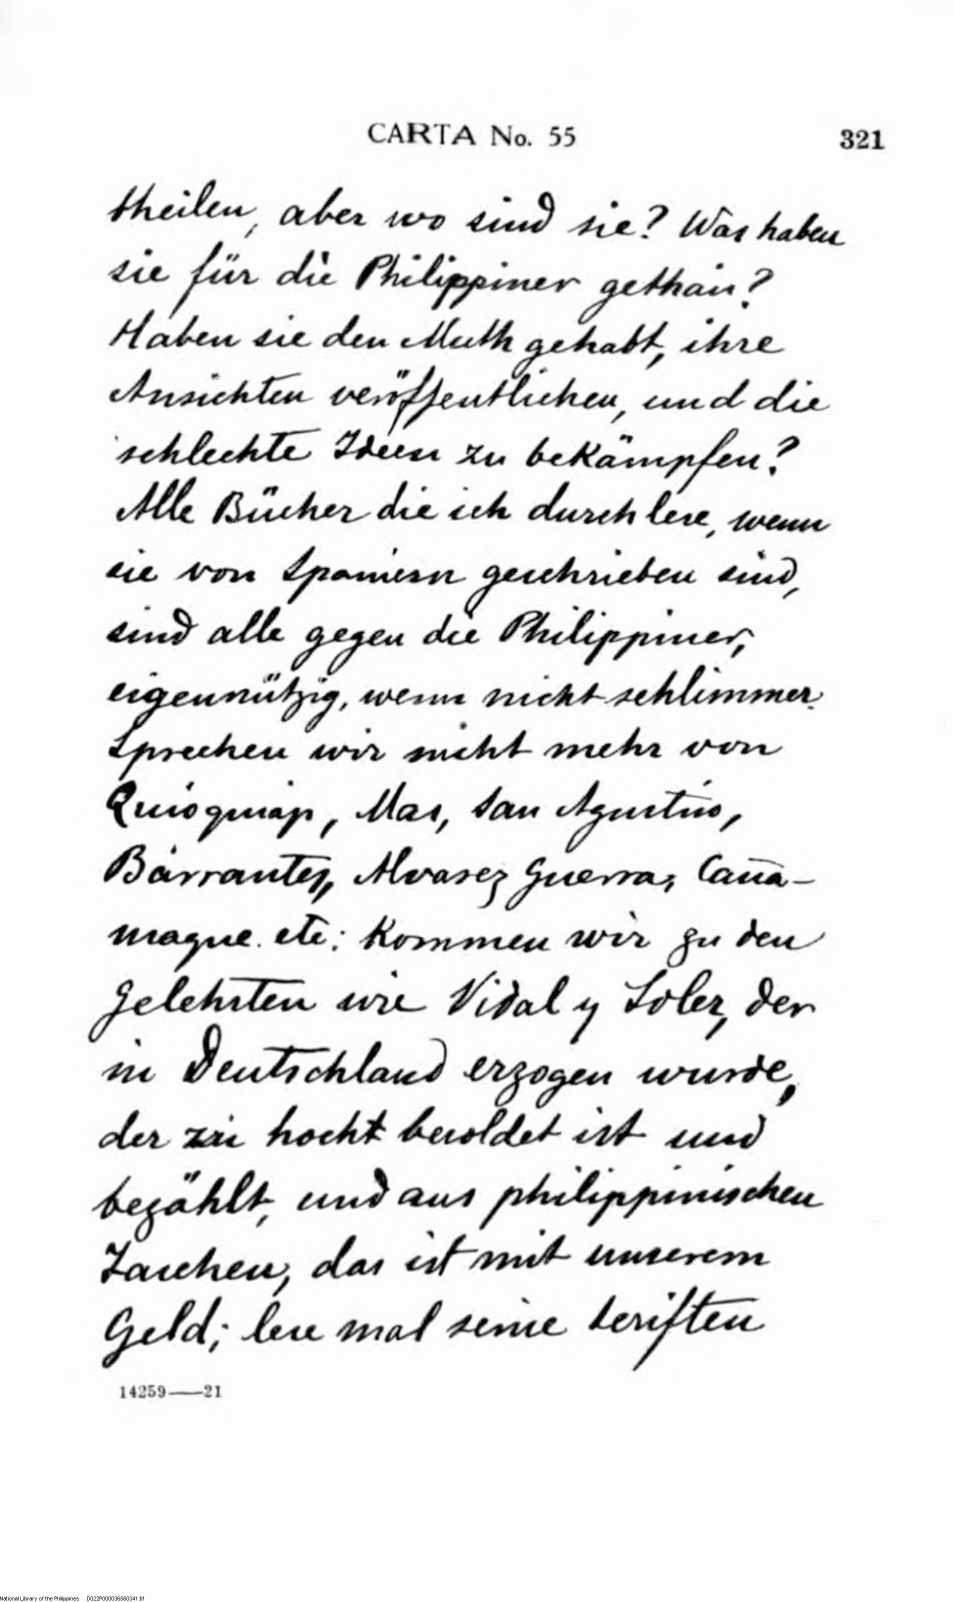 CARTA No. 55 321
theilen, aber wo sind sie? Was haben
sie für die Philippiner gethan?
Haben sie den Muth gehabt, ihre
Ansichten veröffentlichen, und die
schlechte Ideen zu bekämpfen?
Alle Bücher die ich durchlese, wenn
sie von Spaniern geschrieben sind,
sind alle gegen die Philippiner,
eigennützig, wenn nicht schlimmer.
Sprechen wir nicht mehr von
Quioquiap, Mas, San Agustin,
Barrantes, Alvarez Guerra, Caña-
maque. etc: Kommen wir zu den
Gelehrten wie Vidal y Soler, der
in Deutschland erzogen wurde,
der zu hocht besoldet ist und
bezählt, und aus philippinischen
Taschen, das ist mit unserem
Geld; lese mal seine Scriften
14259——21
National Library of the Philippines